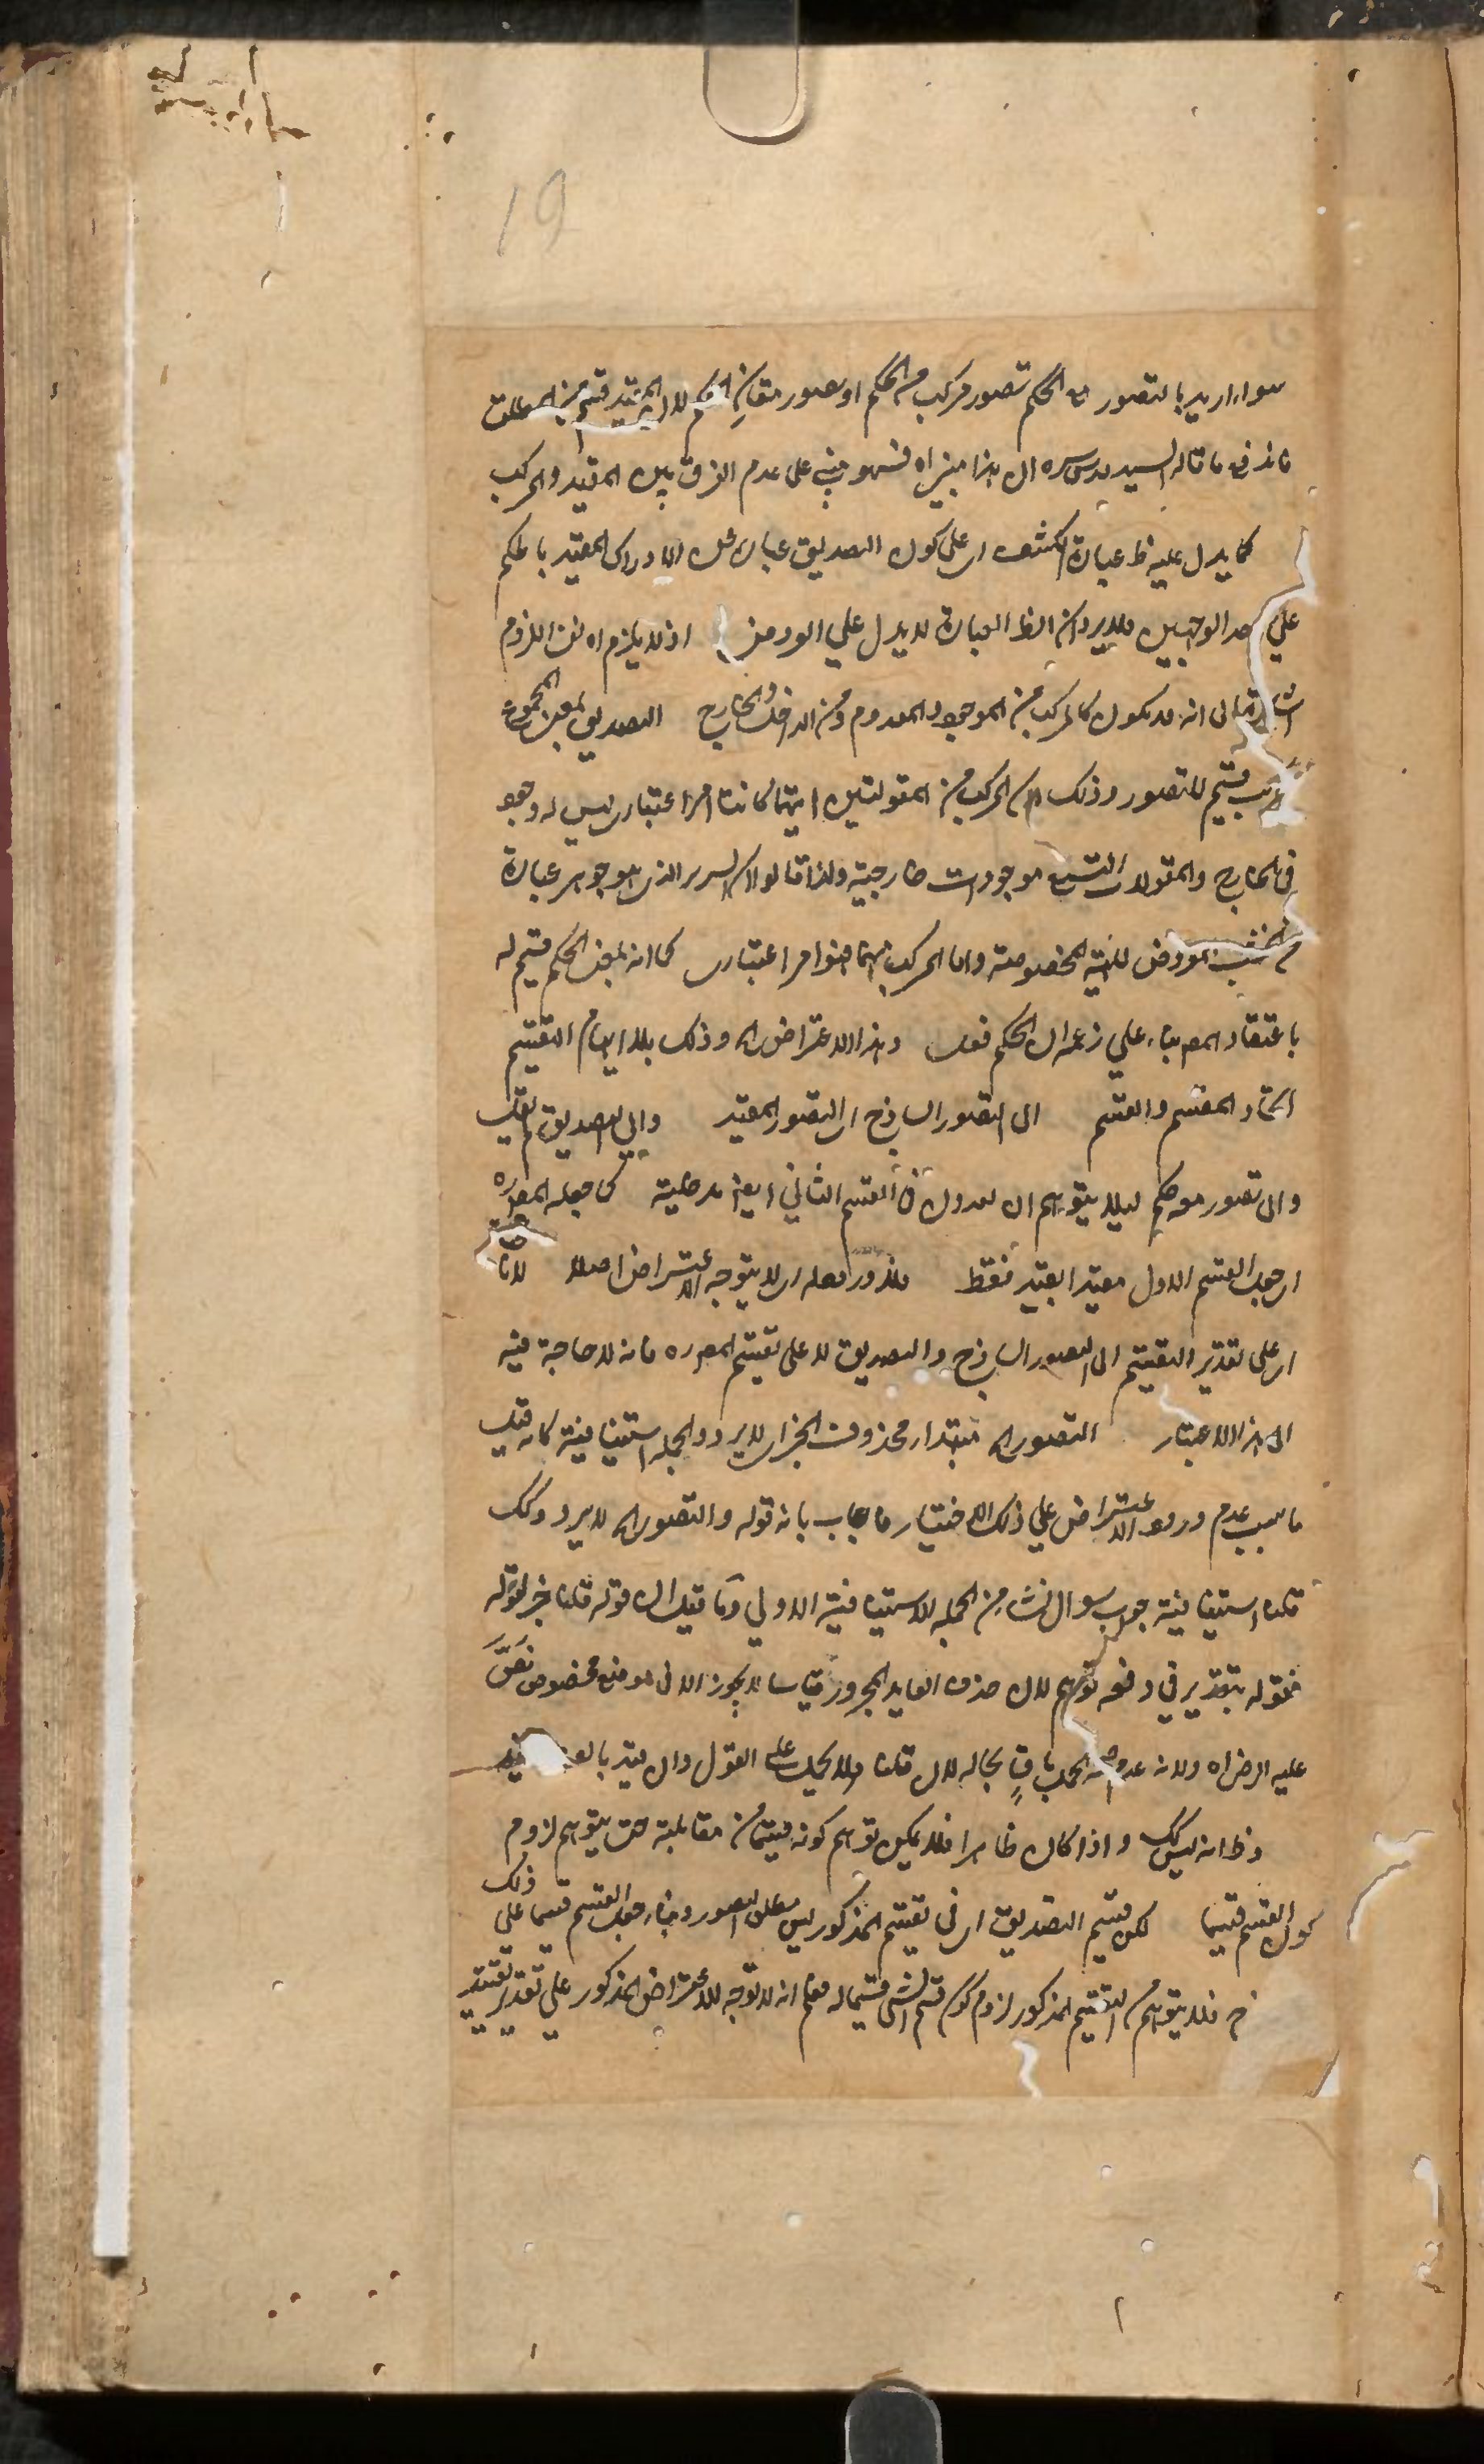 19
سواء اريد بالتصور مع الحكم تصور مركب من الحكم او تصور مقارن الحكم لان المقيد قسم من المطلق
فاندفع ما قاله السيد قدس سره ان هذا ميزاه فسهو مبني على عدم الفرق بين المقيد والمركب
كما يدل عليه ظ عبارة الكشف اى على كون التصديق عبارة عن الادراك المقيد بالحكم
على احد الوجهين فلا يرد ان الظ العبارة لا يدل على العروض اذ لا يلزم اه لمن اللزوم
اشارة الى انه قد يكون كالمركب من الموجود والمعدوم ومن الداخل والخارج التصديق بمعنى المجموع
المركب قسيم للتصور وذلك لان المركب من المقولتين ايتهما كانتا امر اعتبارى ليس له وجود
فى الخارج والمقولات التسع موجودات خارجية ولذا قالوا ان السرير الذى هو جوهر عبارة
من الخشب المعروض للهيئة المخصوصة واما المركب منهما فهو امر اعتبارى كما انه بمعنى الحكم قسيم له
باعتقاد المص بناء على زعمه ان الحكم فعل وهذا الاعتراض اه وذلك بلا ايهام التقسيم
اتحاد المقسم والقسم الى التصور الساذج اى التصور المقيد والى التصديق لم يقل
والى تصور معه حكم ليلا يتوهم ان للعدول فى القسم الثانى ايضا مدخلية كما جعله المص ره
اى جعل القسم الاول مقيدا بقيد فقط فلا ورود له اى لا يتوجه الاعتراض اصلا لانا
اى على تقدير التقسيم الى التصور الساذج والتصديق لا على تقسيم المص ره فانه لا حاجة فيه
الى هذا الاعتبار التصور اه مبتداء محذوف الخبر اى لا يرد والجملة استينافية كانه قيل
ما سبب عدم ورود الاعتراض على ذلك الاختيار فاجاب بانه قوله والتصور اه لا يرد وكك
قلنا استينافية جواب سوال نشاء من الجملة الاستينافية الاولى وما قيل ان قوله قلنا خبر لقوله
فقوله بتقدير فى دفعه توهم لان حذف العايد المجرور قياسا لا يجوز الا فى موضع مخصوص نص
عليه الرضى اه ولانه عدم صحة الحمل باق بحاله لان قلنا لا يحمل على القول وان قيد بالف قيد
وظ انه ليس كك واذا كان ظاهرا فلا يمكن توهم كونه قسيما من مقابلته حتى يتوهم لزوم
كون القسم قسيما لكن قسيم التصديق اى فى تقسيم المذكور ليس مطلق التصور وبناء جعل القسم قسيما على ذلك
ح فلا يتوهم من التقسيم المذكور لزوم كون قسم الشى قسيما له فعلم انه لا توجه للاعتراض المذكور على تقدير تقييد